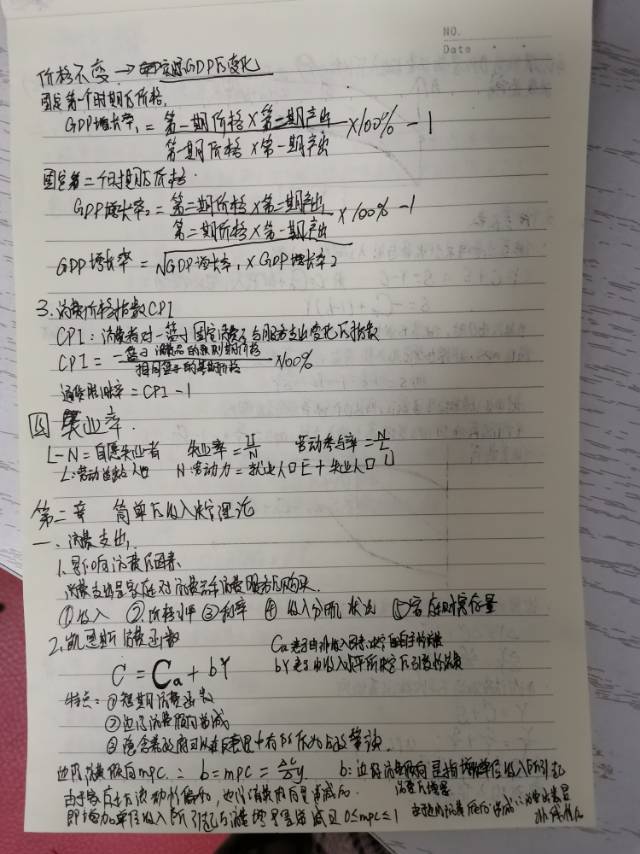 NO.
Date
价格不变→实际GDP的变化
固定第一个时期的价格,
GDP增长率₁ = 第一期价格×第二期产出 / 第一期价格×第一期产出 ×100% -1
固定第二个时期的价格.
GDP增长率₂ = 第二期价格×第二期产出 / 第二期价格×第一期产出 ×100% -1
GDP增长率 = √GDP增长率₁ × GDP增长率2
3.消费价格指数CPI
CPI:消费者对一篮子固定消费品与服务支出变化的指数
CPI = 一篮子消费品的 期价格 / 相同篮子的基期价格 ×100%
通货膨胀率 = CPI-1
四 失业率.
L-N=自愿失业者 失业率=U/N 劳动参与率=N/L
L:劳动 人口 N:劳动力=就业人口E+失业人口U
第二章 简单的收入决定理论
一、消费支出
1.影响消费的因素
消费支出是家庭对消费品和消费服务的购买.
①收入 ②价格水平 ③利率 ④收入分配状况 ⑤家庭财富存量
2.凯恩斯消费函数
Ca表示由非收入因素决定的自主性消费
C = Ca + bY
bY表示由收入水平所决定的引致性消费
特点:①短期消费函数
②边际消费倾向递减
③隐含着政府可以在 中有所作为的政策
边际消费倾向mpc: b=mpc=△C/△Y b:边际消费倾向是指增加单位收入所引起
消费的增量
由于 边际消费倾向是递减的.
即增加单位收入所引起的消费增量是递减且0≤mpc≤1